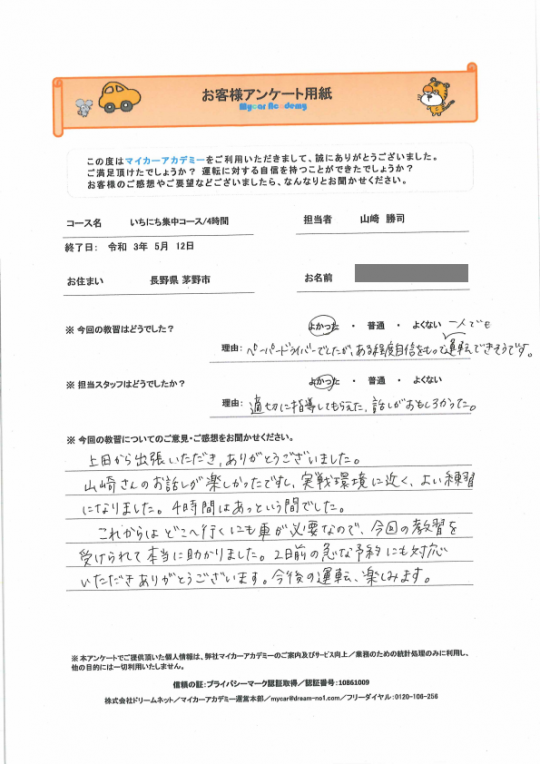 お客様アンケート用紙
Mycar Academy
この度はマイカーアカデミーをご利用いただきまして、誠にありがとうございました。
ご満足頂けたでしょうか? 運転に対する自信を持つことができたでしょうか?
お客様のご感想やご要望などございましたら、なんなりとお聞かせください。
コース名 いちにち集中コース/4時間 担当者 山崎 勝司
終了日: 令和 3年 5月 12日
お住まい 長野県 茅野市 お名前
※ 今回の教習はどうでした? よかった ・ 普通 ・ よくない
一人でも
理由: ペーパードライバーでしたが、ある程度自信をもって運転できそうです。
※ 担当スタッフはどうでしたか? よかった ・ 普通 ・ よくない
理由: 適切に指導してもらえた、話しがおもしろかった。
※ 今回の教習についてのご意見・ご感想をお聞かせください。
上田から出張いただき、ありがとうございました。
山崎さんのお話しが楽しかったですし、実戦環境に近く、よい練習
になりました。4時間はあっという間でした。
これからはどこへ行くにも車が必要なので、今回の教習を
受けられて本当に助かりました。2日前の急な予約にも対応
いただきありがとうございます。今後の運転、楽しみます。
※ 本アンケートでご提供頂いた個人情報は、弊社マイカーアカデミーのご案内及びサービス向上/業務のための統計処理のみに利用し、
他の目的には一切利用いたしません。
信頼の証:プライバシーマーク認証取得/認証番号:10861009
株式会社ドリームネット/マイカーアカデミー運営本部/mycar@dream-no1.com/フリーダイヤル:0120-108-256